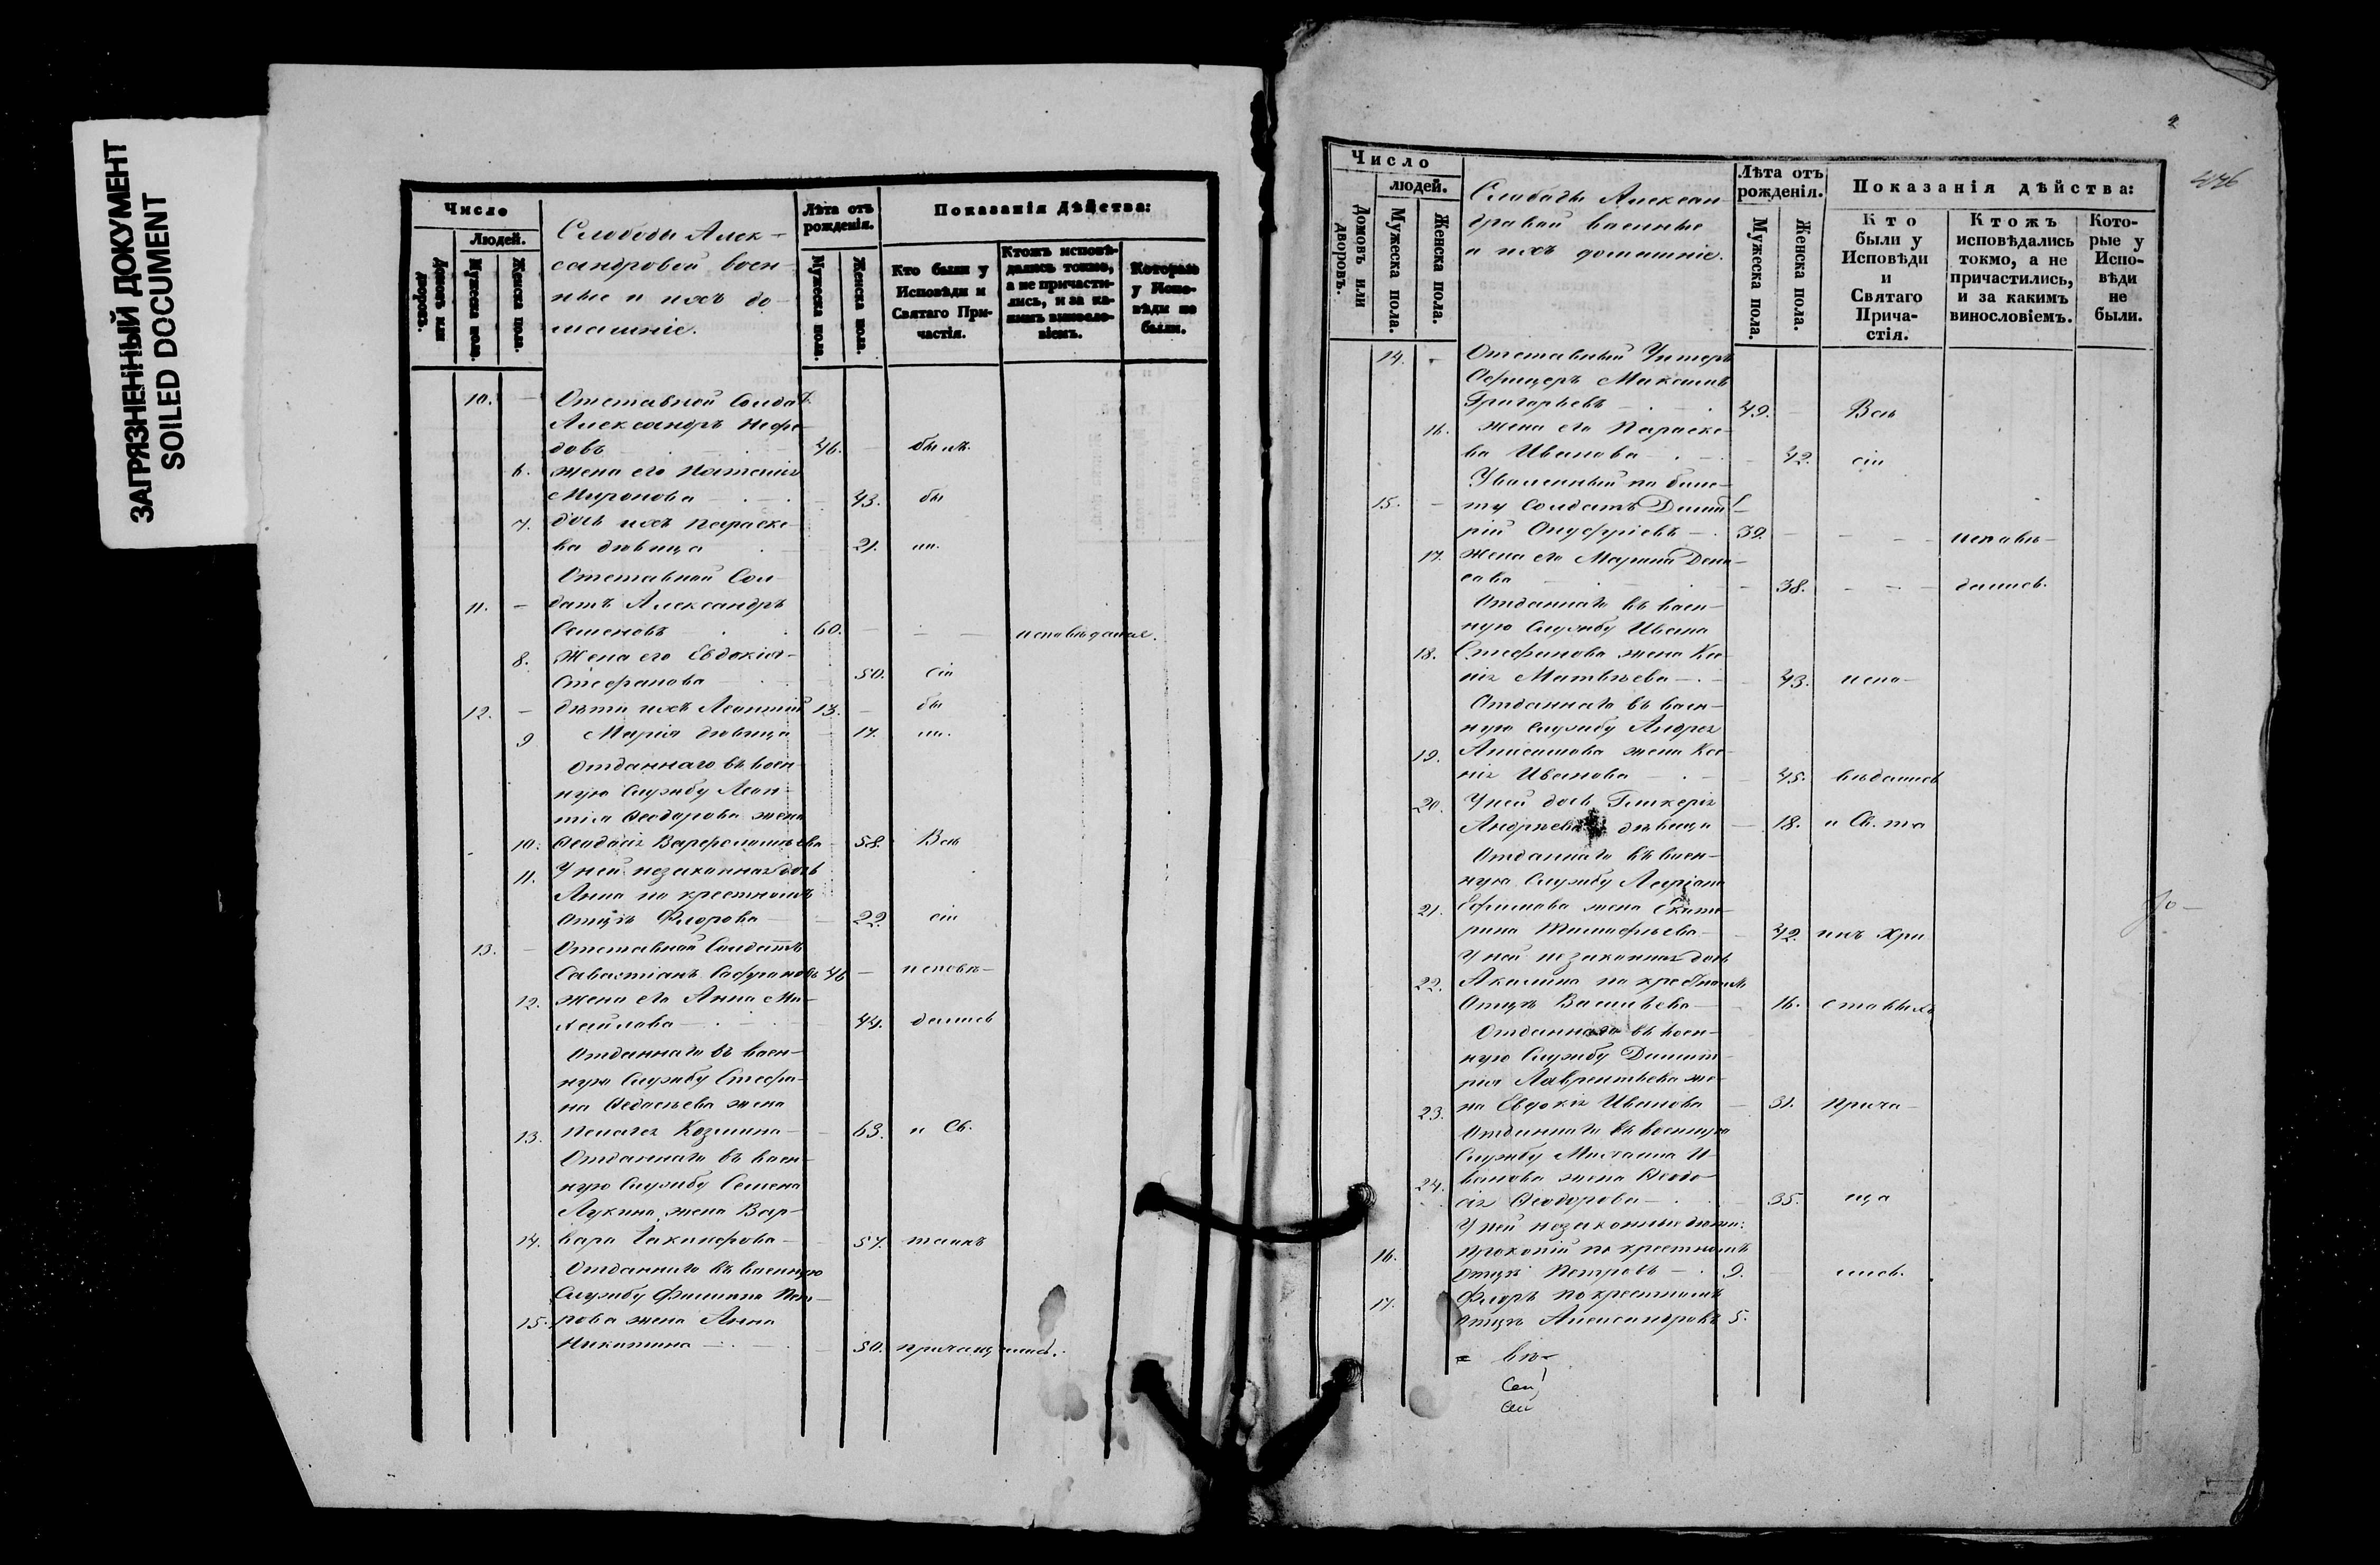 ЗАГРЯЗНЕННЫЙ ДОКУМЕНТ
SOILED DOCUMENT
Число
Людей.
Домовъ или дворовъ.
Мужеска пола.
Женска пола.
Слободы Алек-
сандровой воен-
ные и ихъ до-
машніе.
Лѣта отъ рожденія.
Мужеска пола.
Женска пола.
Показанія Дѣйства:
Кто были у Исповѣди и Святаго При-частія.
Ктожъ исповѣ-дались токмо, а не причасти-лись, и за ка-кимъ виносло-віемъ.
Которые у Испо-вѣди не были.
10. Отставной Солдатъ
Александръ Нефе-
довъ 46. былъ.
6. жена его
Миронова 43. бы
7. дочь ихъ Параске-
ва дѣвица 21. ли.
Отставной Сол-
11. датъ Александръ
Семеновъ 60. исповѣдался.
8. Жена его Евдокія
Стефанова 50. сіи
12. дѣти ихъ Леонтій 13. бы
9 Марія дѣвица 17. ли.
Отданнаго въ воен-
ную Службу Леон-
тія Ѳеодорова жена
10. Ѳеодосія Варѳоломѣева 58. Всѣ
11. У ней незаконная дочь
Анна по крестномъ
Отцѣ Флорова 22. сіи
13. Отставной Солдатъ
Савастіанъ 46 исповѣ-
12. жена его Анна Ми-
хайлова 44. дались
Отданнаго въ воен-
ную Службу Стефа-
на жена
13. Пелагея Козмина 63. и Св.
Отданнаго въ воен-
ную Службу Семена
Лукина жена Вар-
14. вара Іакинфова 57. таинъ
Отданнаго въ военную
Службу Филиппа Пет-
15. рова жена Анна
Никитина 50. причащались.
2
446
Число
людей.
Домовъ или дворовъ.
Мужеска пола.
Женска пола.
Слободы Алексан-
дровой военные
и ихъ домашніе.
Лѣта отъ рожденія.
Мужеска пола.
Женска пола.
Показанія дѣйства:
Кто были у Исповѣди и Святаго Прича-стія.
Ктожъ исповѣдались токмо, а не причастились, и за какимъ винословіемъ.
Кото-рые у Испо-вѣди не были.
14. Отставный Унтеръ
Офицеръ Максимъ
Григорьевъ 49. Всѣ
16. жена его Параске-
ва Иванова 42. сіи
Уволенный по биле-
15. ту Солдатъ Димит-
рій Онуфріевъ 39. исповѣ-
17. Жена его Марина Дени-
сова 38. дались.
Отданнаго въ воен-
ную Службу Ивана
18. Стефанова жена Ксе-
нія Матвѣева 43. испо-
Отданнаго въ воен-
ную Службу Андрея
19. Анисимова жена Ксе-
нія Иванова 45. вѣдались
20. У ней дочь Гликерія
Андреева дѣвица 18. и Св. та
Отданнаго въ воен-
ную Службу
21. Ефимова жена Екате-
рина Тимофѣева 42. инъ Хри
У ней незаконная дочь
22. Акилина по крестномъ
Отцѣ Васильева 16. стовыхъ
Отданнаго въ воен-
ную Службу Димит-
рія Лаврентьева же-
23. на Евдокія Иванова 31. прича-
Отданнаго въ военную
Службу Михаила И-
24. ванова жена Ѳеодо-
сія Ѳеодорова 35. ща
У ней незаконные дѣти:
16. Прокопій по крестномъ
Отцѣ Петровъ 9. лись.
17. Флоръ по крестномъ
Отцѣ Александровъ 5.